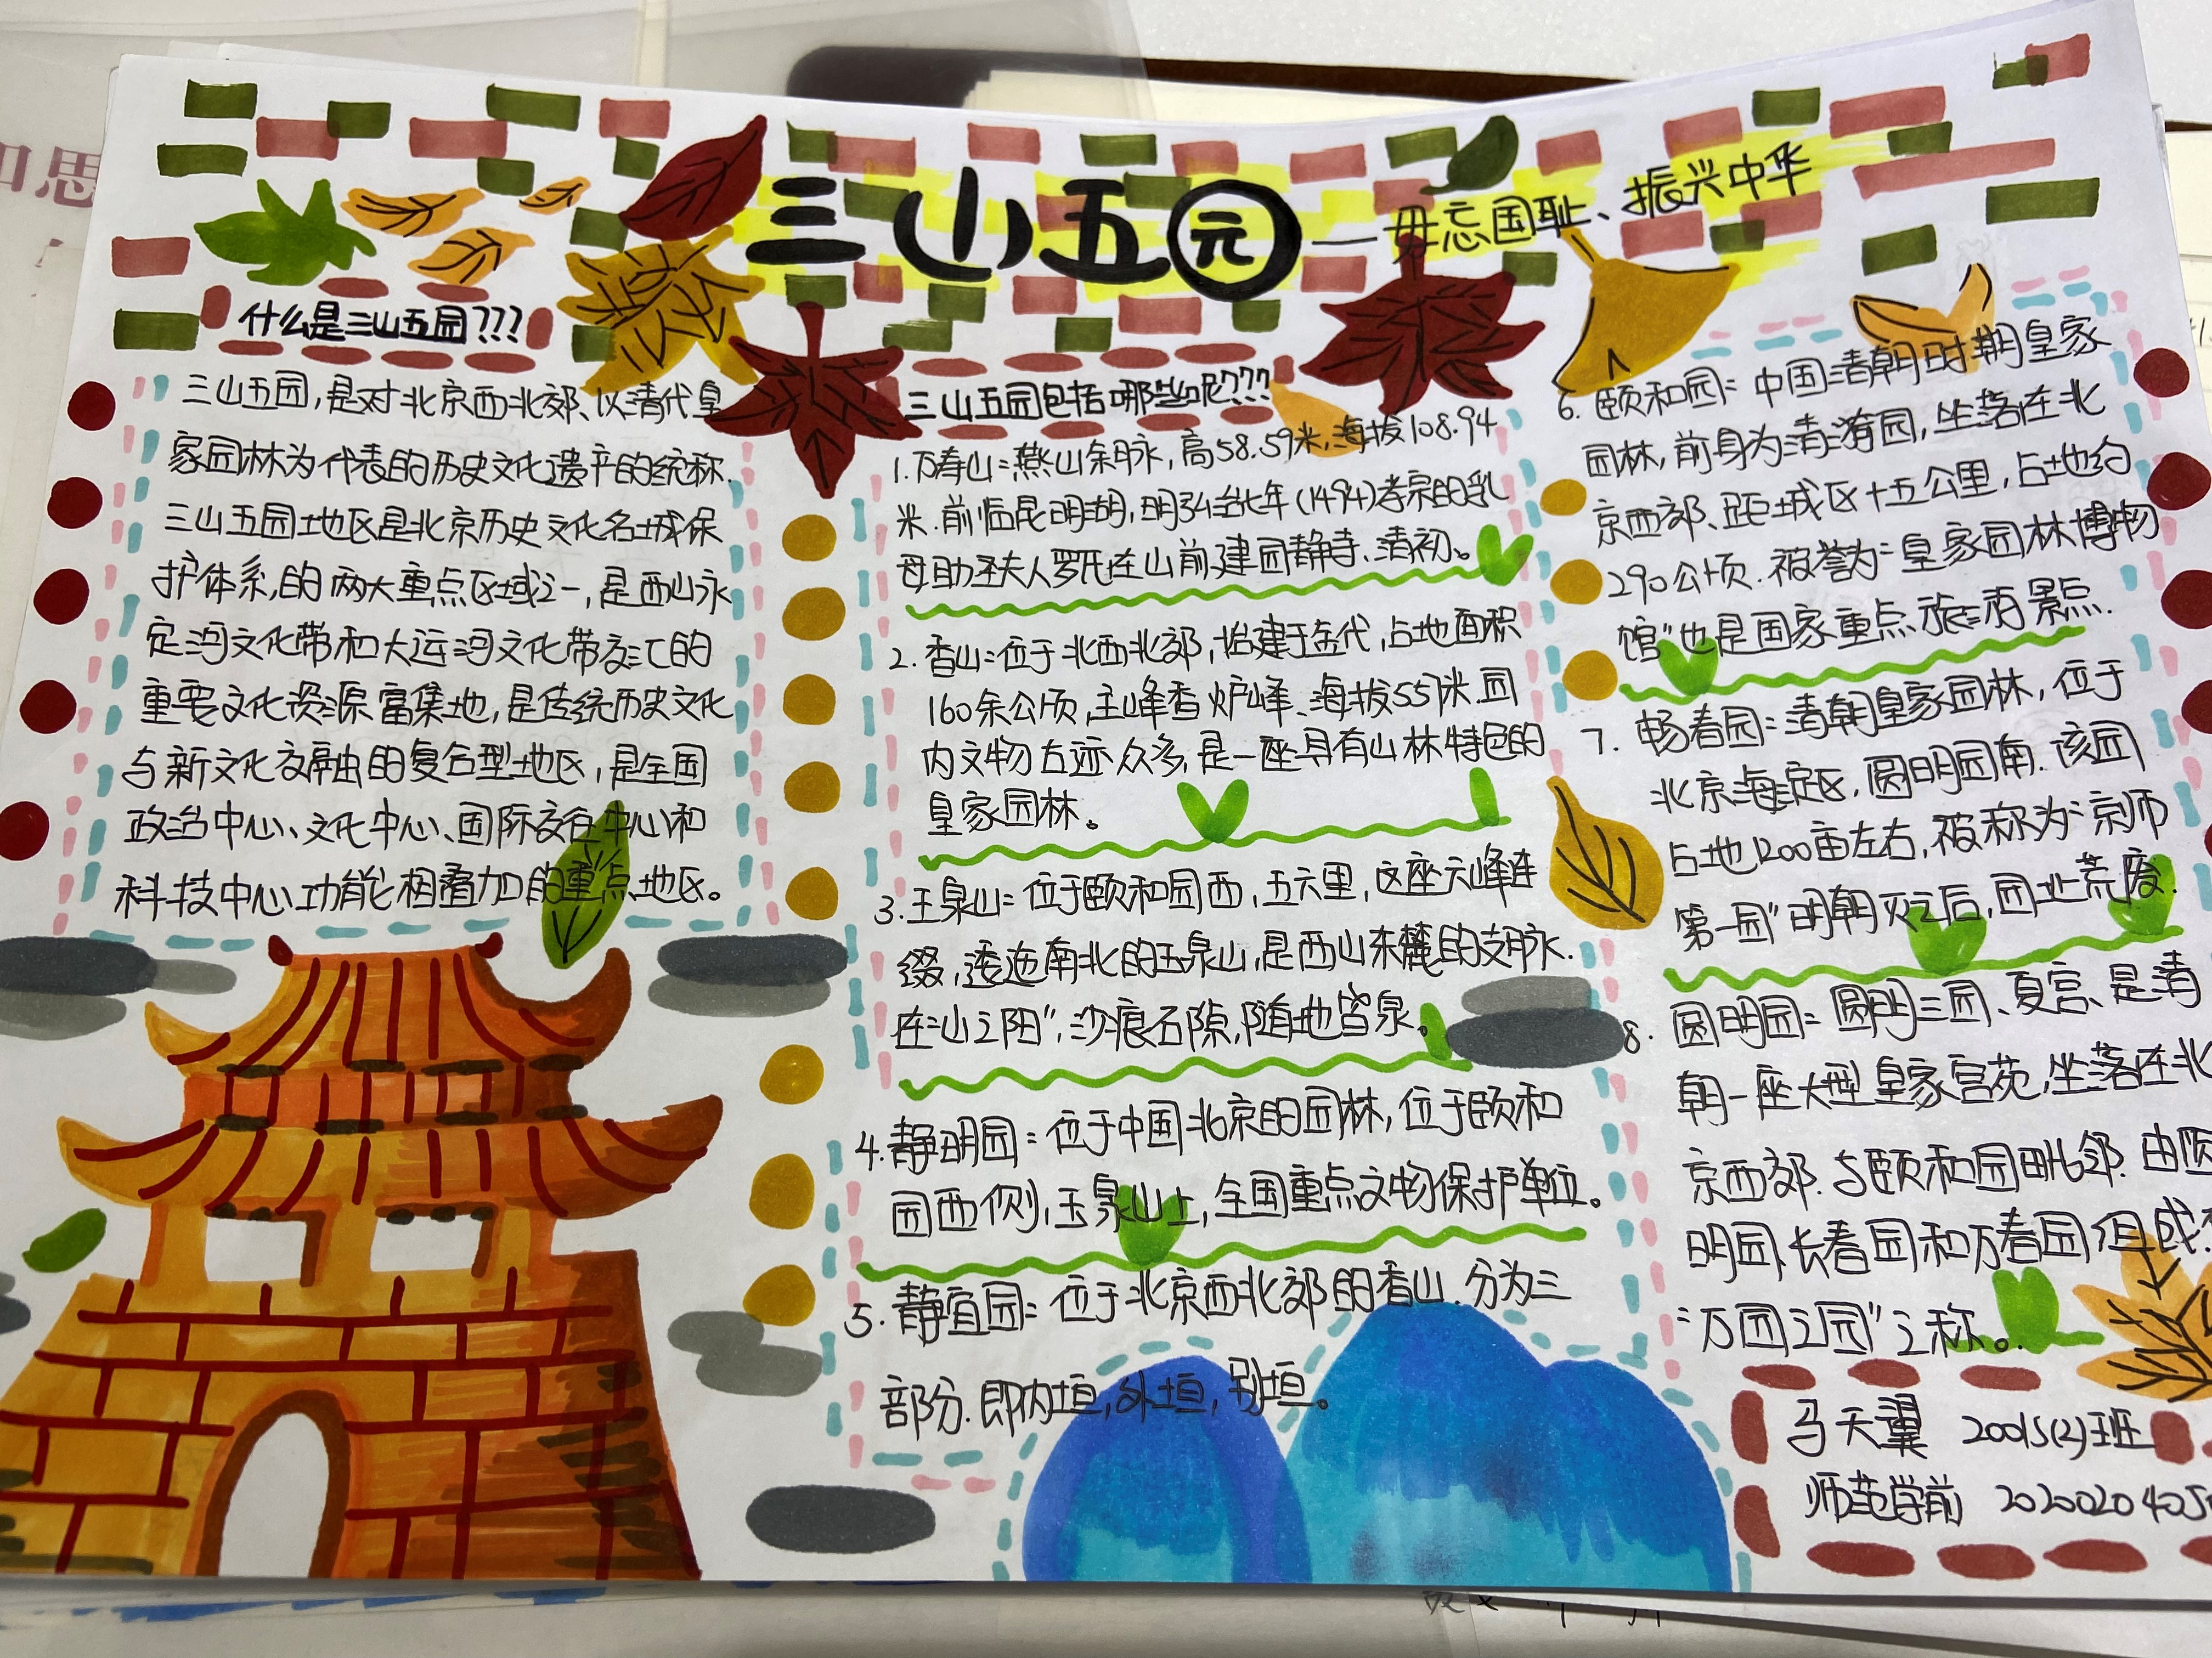 三山五园——毋忘国耻、振兴中华
什么是三山五园???
三山五园,是对北京西北郊、以清代皇
家园林为代表的历史文化遗产的统称.
三山五园地区是北京历史文化名城保
护体系,的两大重点区域之一,是西山永
定河文化带和大运河文化带交汇的
重要文化资源富集地,是传统历史文化
与新文化交融的复合型地区,是全国
政治中心、文化中心、国际交往中心和
科技中心功能相叠加的重点地区。
三山五园包括哪些呢???
1.万寿山:燕山余脉,高58.59米,海拔108.94
米.前临昆明湖,明弘治七年(1494)孝宗的乳
母助圣夫人罗氏在山前建园静寺、清初。
2.香山:位于北西北郊,始建于金代,占地面积
160余公顷,主峰香炉峰、海拔557米.园
内文物古迹众多,是一座具有山林特色的
皇家园林。
3.玉泉山:位于颐和园西,五六里,这座六峰连
缀,逶迤南北的玉泉山,是西山东麓的支脉.
在"山之阳",沙痕石隙,随地皆泉。
4.静明园:位于中国北京的园林,位于颐和
园西侧,玉泉山上,全国重点文物保护单位。
5.静宜园:位于北京西北郊的香山.分为三
部分.即内垣,外垣,别垣。
6.颐和园:中国清朝时期皇家
园林,前身为清漪园,坐落在北
京西郊、距城区十五公里,占地约
290公顷.被誉为"皇家园林博物
馆"也是国家重点旅游景点.
7.畅春园:清朝皇家园林,位于
北京海淀区,圆明园南.该园
占地1200亩左右,被称为"京师
第一园"明朝灭之后,园址荒废.
8.圆明园:圆明三园、夏宫、是清
朝一座大型皇家宫苑,坐落在北
京西郊.与颐和园毗邻.由圆
明园,长春园和万春园组成.
"万园之园"之称。
马天翼 20015(2)班
师范学前 2020020405